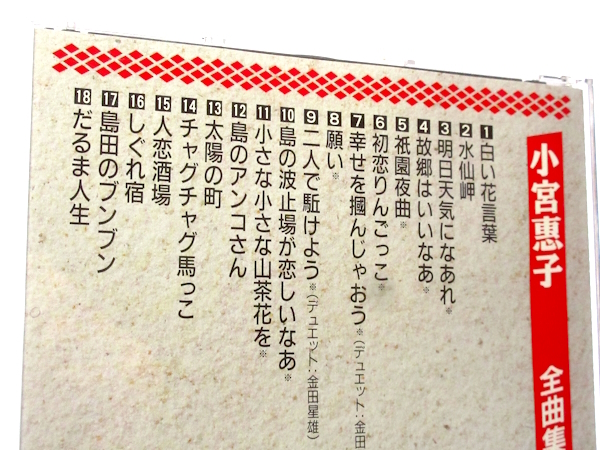 小宮惠子 全曲集
1 白い花言葉
2 水仙岬
3 明日天気になあれ※
4 故郷はいいなあ※
5 祇園夜曲※
6 初恋りんごっこ※
7 幸せを摑んじゃおう※(デュエット:金田
8 願い※
9 二人で駈けよう※(デュエット:金田星雄)
10 島の波止場が恋しいなあ※
11 小さな小さな山茶花を※
12 島のアンコさん
13 太陽の町
14 チャグチャグ馬っこ
15 人恋酒場
16 しぐれ宿
17 島田のブンブン
18 だるま人生